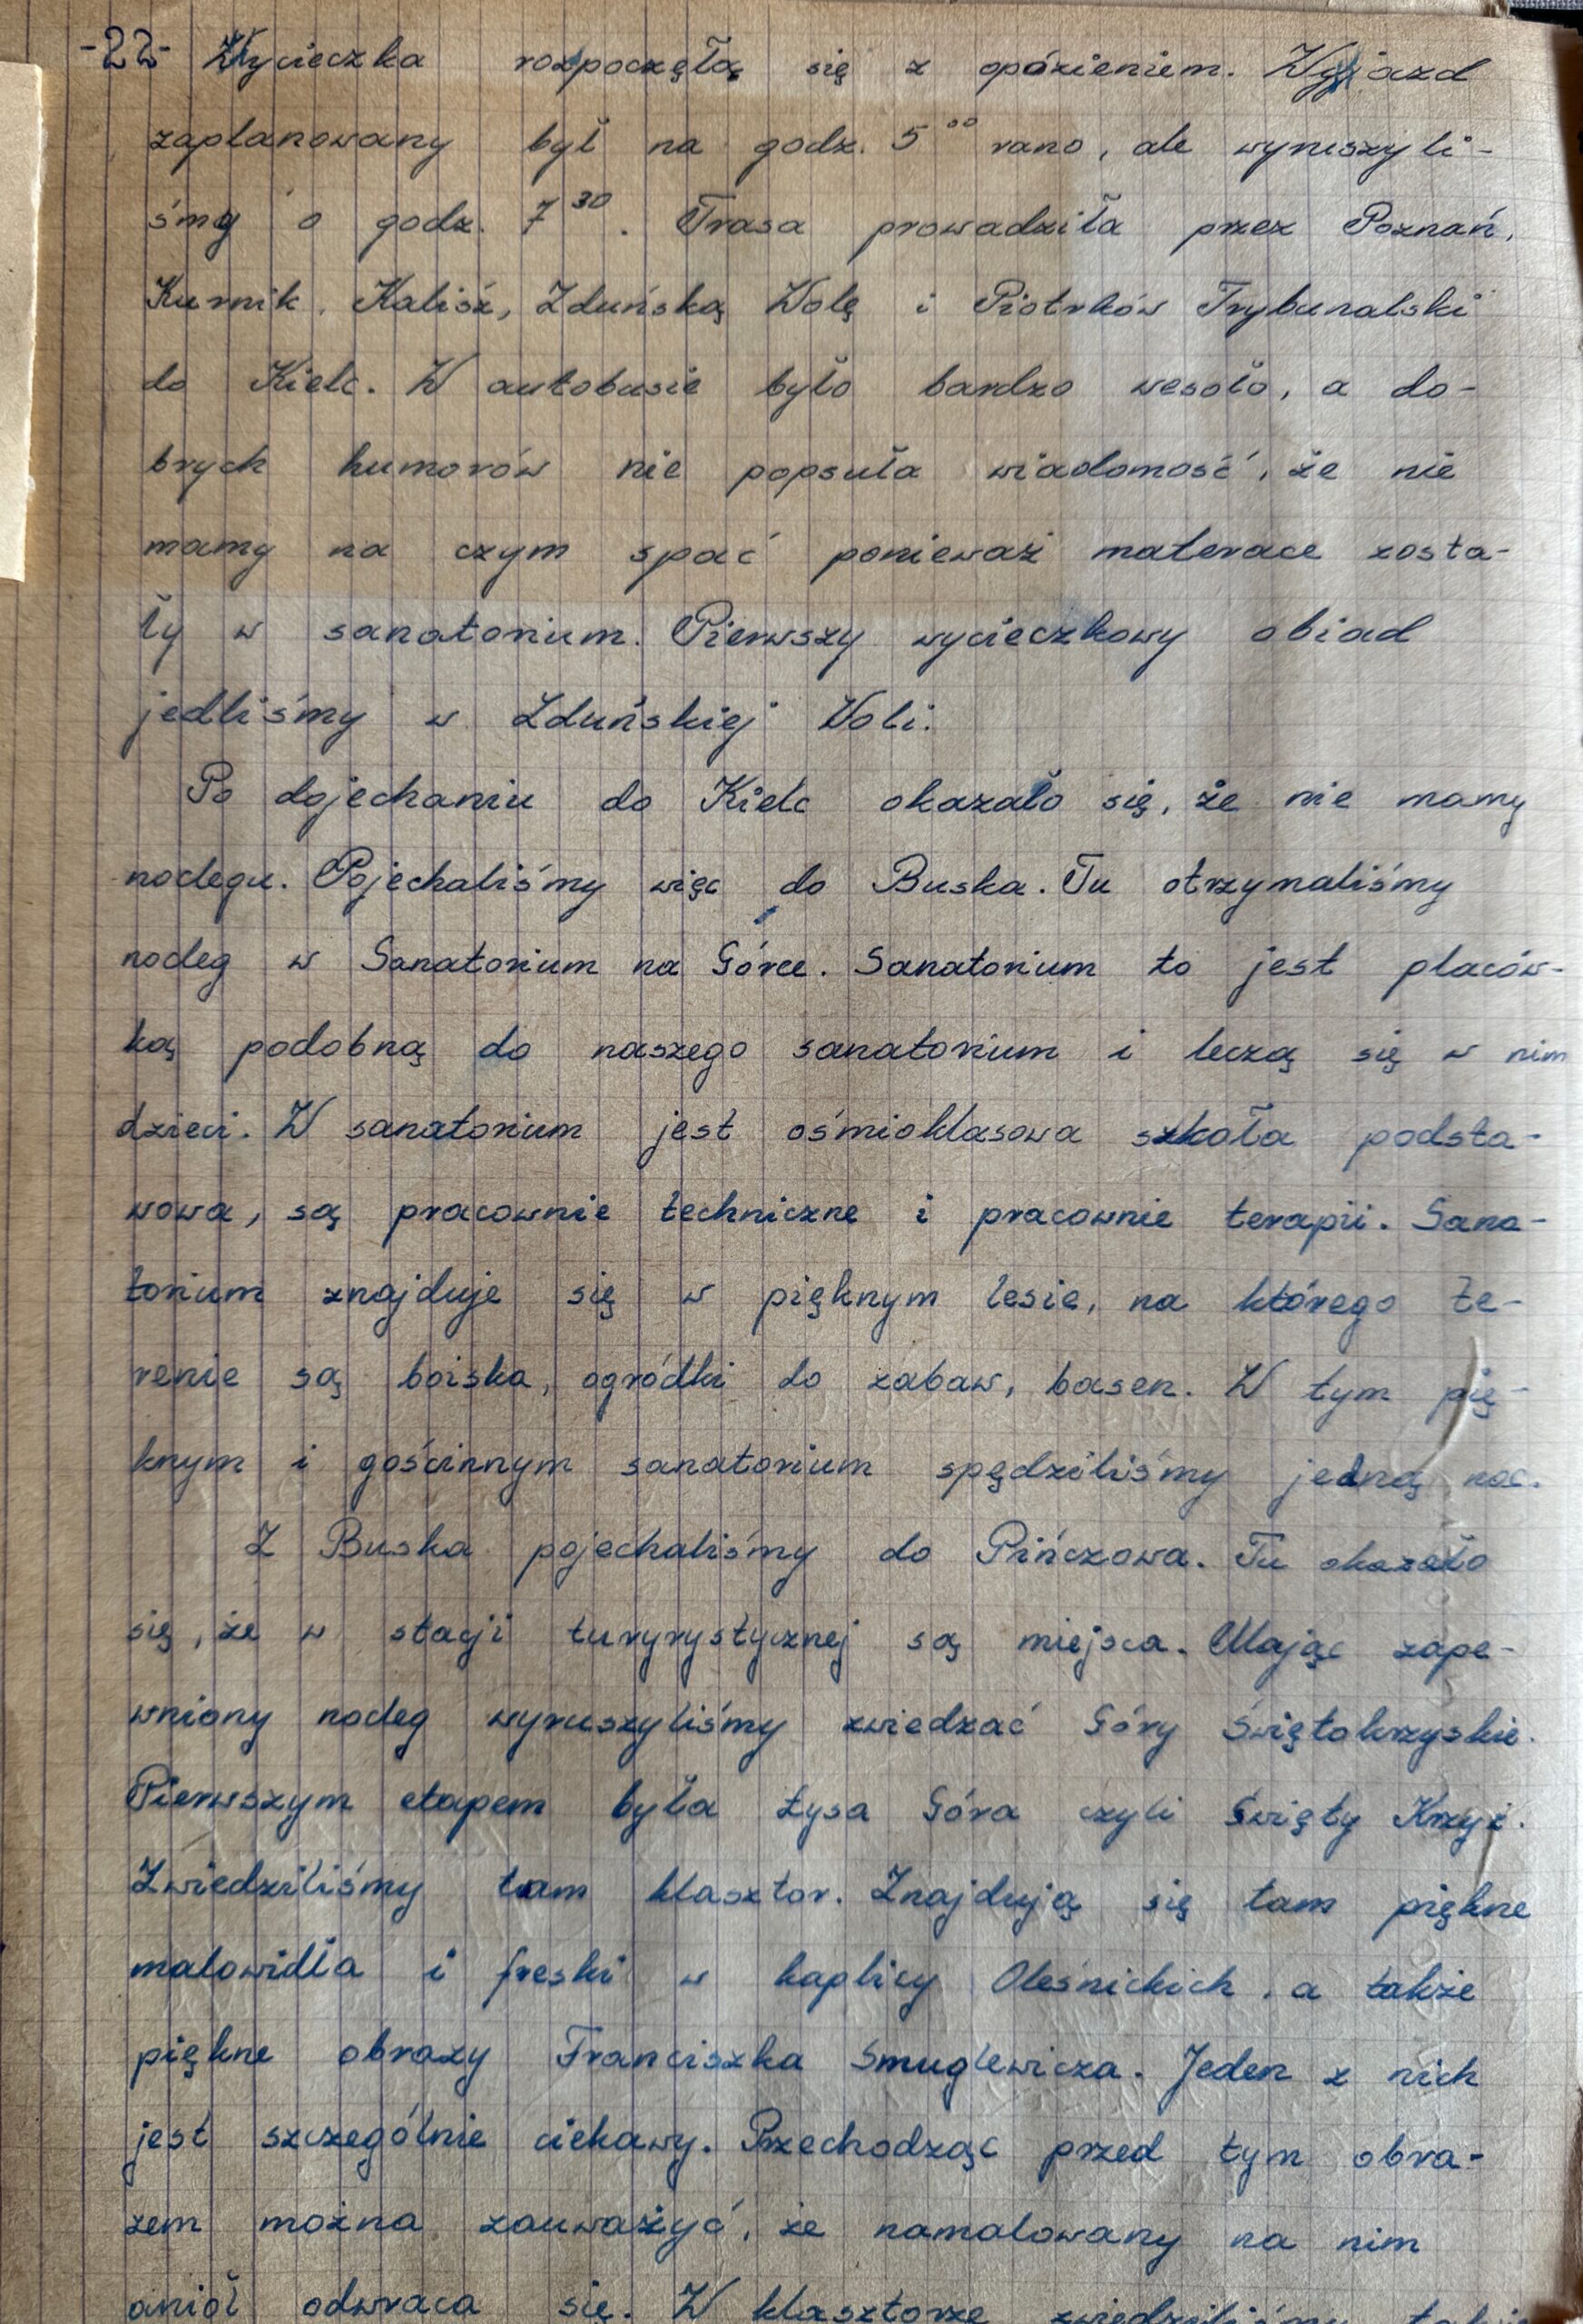 -22- Wycieczka rozpoczęła się z opóźnieniem. Wyjazd
zaplanowany był na godz. 5⁰⁰ rano, ale wyruszyli-
śmy o godz. 7³⁰. Trasa prowadziła przez Poznań,
Kurnik, Kalisz, Zduńską Wolę i Piotrków Trybunalski
do Kielc. W autobusie było bardzo wesoło, a do-
brych humorów nie popsuła wiadomość, że nie
mamy na czym spać ponieważ materace zosta-
ły w sanatorium. Pierwszy wycieczkowy obiad
jedliśmy w Zduńskiej Woli.
Po dojechaniu do Kielc okazało się, że nie mamy
noclegu. Pojechaliśmy więc do Buska. Tu otrzymaliśmy
nocleg w Sanatorium na Górce. Sanatorium to jest placów-
ką podobną do naszego sanatorium i leczą się w nim
dzieci. W sanatorium jest ośmioklasowa szkoła podsta-
wowa, są pracownie techniczne i pracownie terapii. Sana-
torium znajduje się w pięknym lesie, na którego te-
renie są boiska, ogródki do zabaw, basen. W tym pię-
knym i gościnnym sanatorium spędziliśmy jedną noc.
Z Buska pojechaliśmy do Pińczowa. Tu okazało
się, że w stacji turyrystycznej są miejsca. Mając zape-
wniony nocleg wyruszyliśmy zwiedzać Góry Świętokrzyskie.
Pierwszym etapem była Łysa Góra czyli Święty Krzyż.
Zwiedziliśmy tam klasztor. Znajdują się tam piękne
malowidła i freski w kaplicy Oleśnickich, a także
piękne obrazy Franciszka Smuglewicza. Jeden z nich
jest szczególnie ciekawy. Przechodząc przed tym obra-
zem można zauważyć, że namalowany na nim
anioł odwraca się. W klasztorze zwiedziliśmy